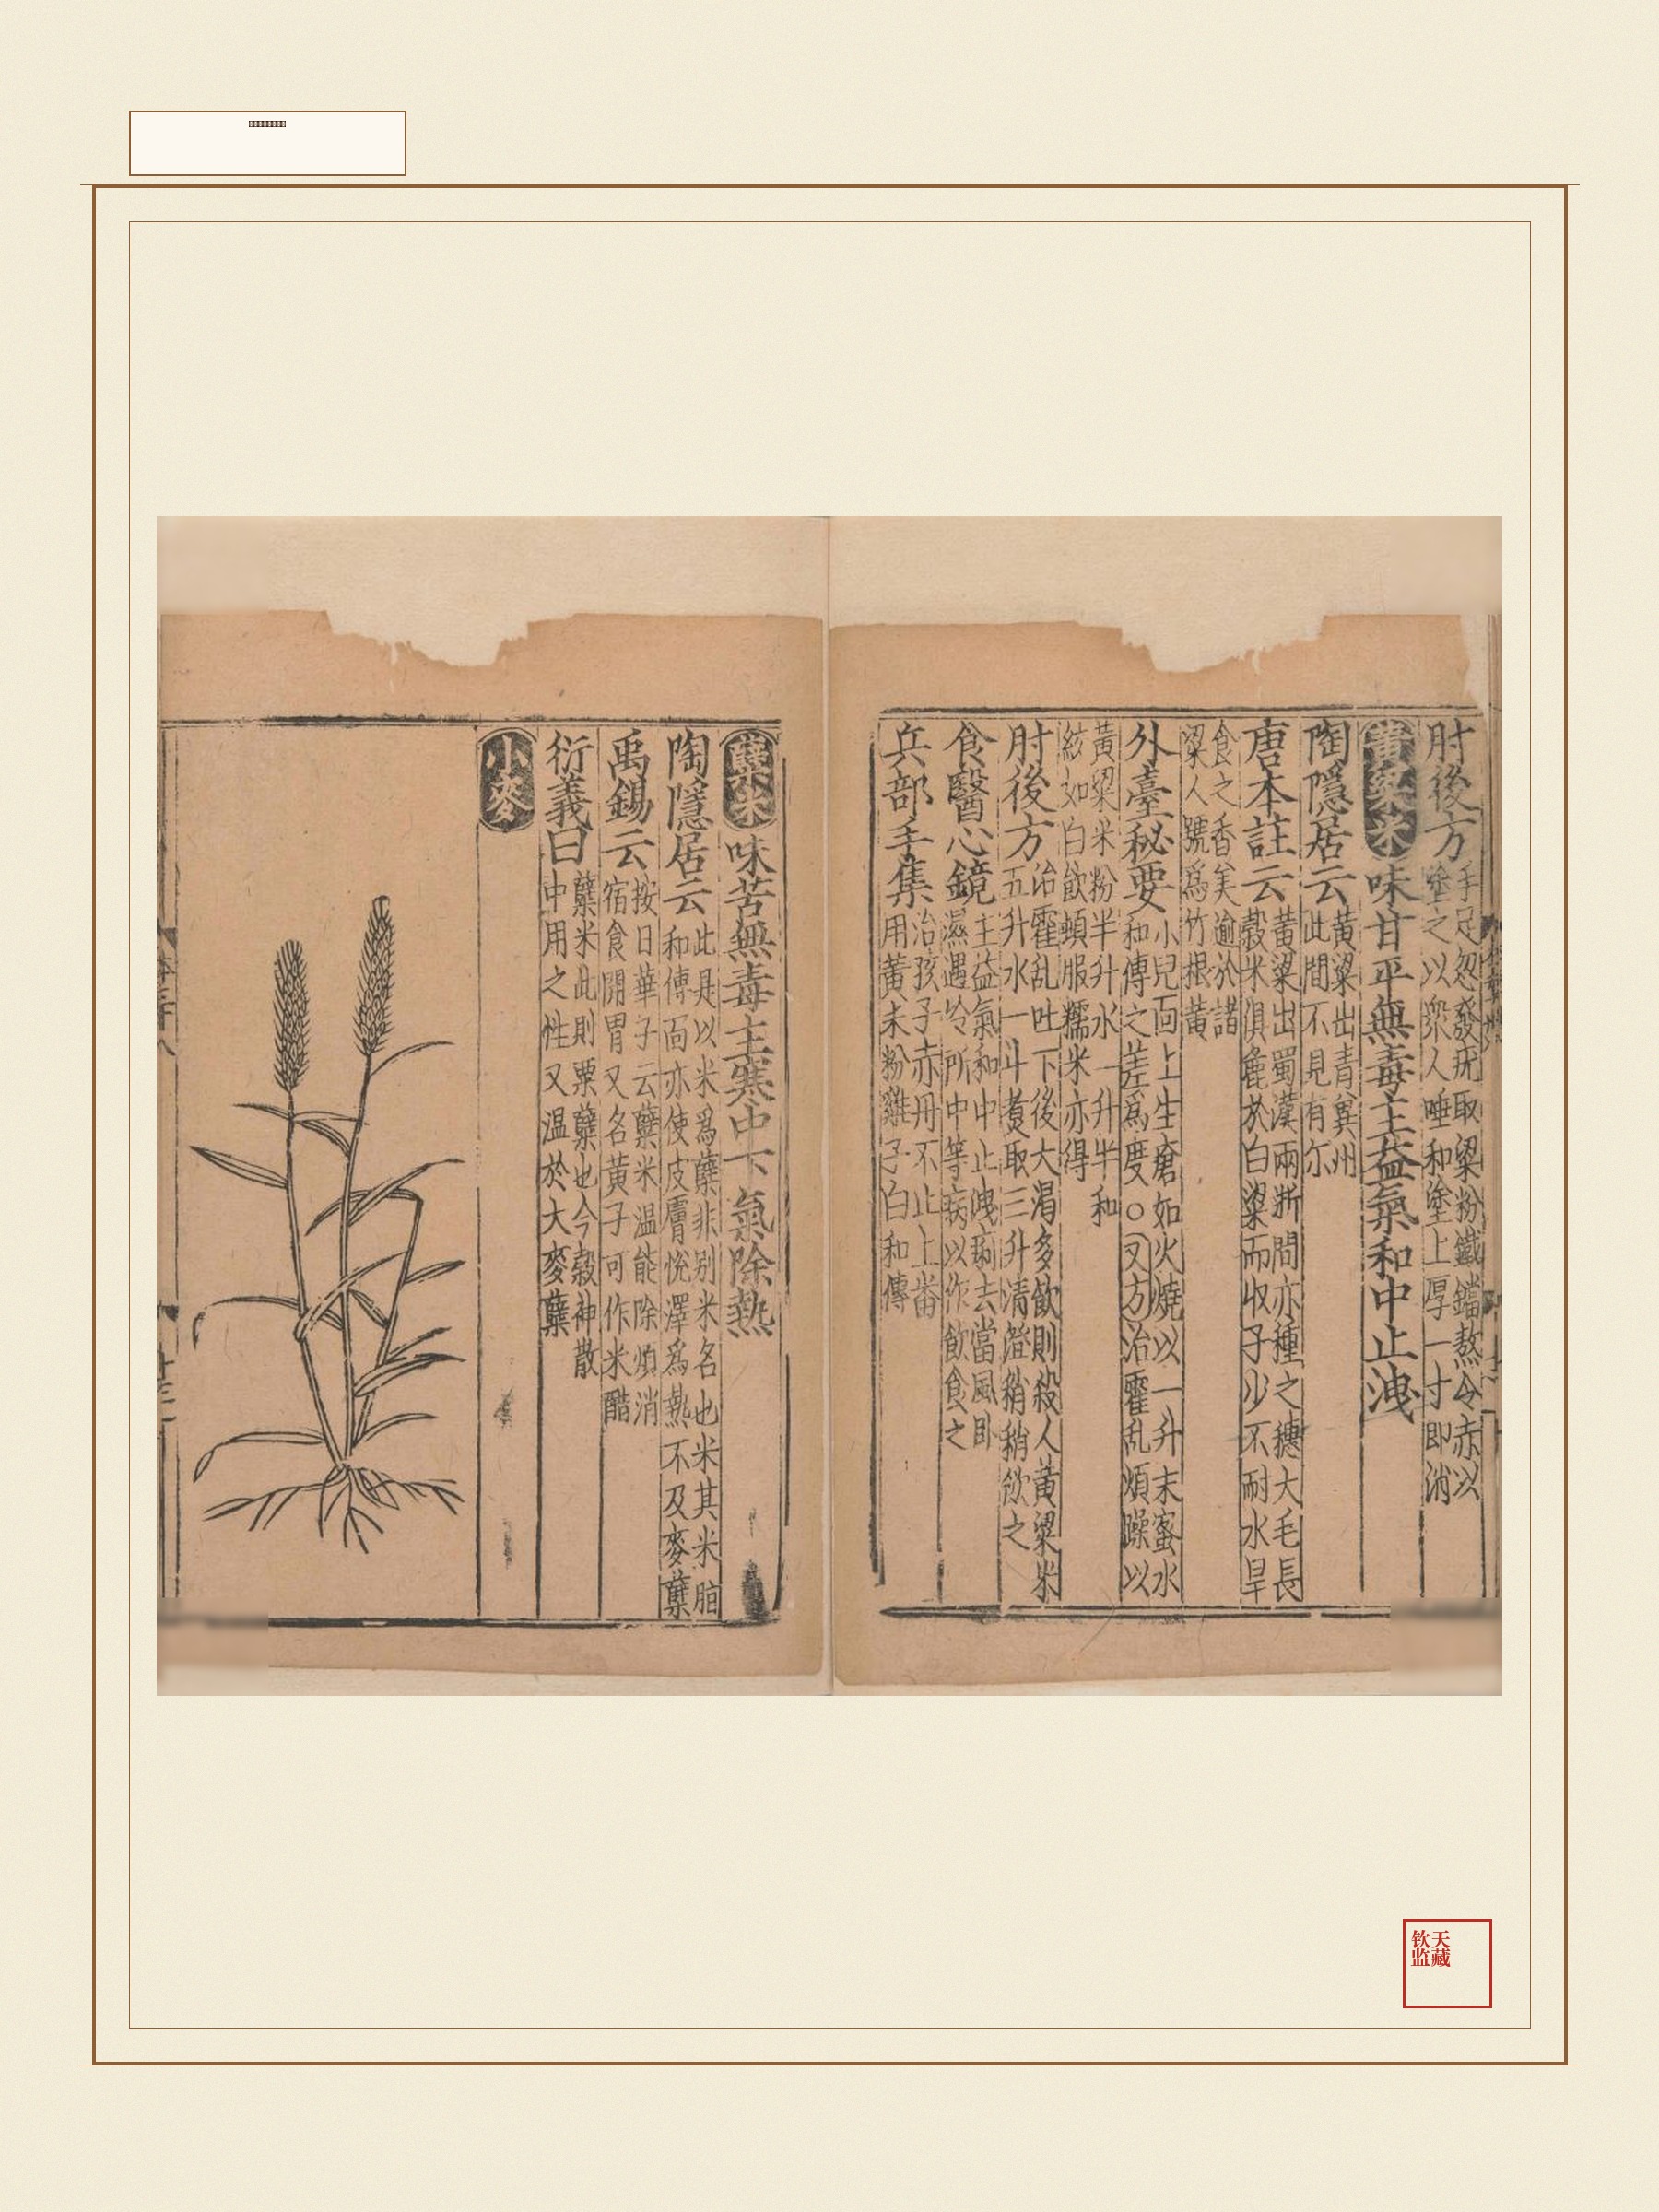 肘後方手足忽發疣取粱粉鐵鐺熬令赤以
塗之以衆人唾和塗上厚一寸即消
黃粱米味甘平無毒主益氣和中止洩
陶隱居云黃粱出青兾州
此間不見有尓
唐本註云黃粱出蜀漢兩淅間亦種之穗大毛長
穀米俱麄於白粱而收子少不耐水旱
食之香美逾於諸
粱人號爲竹根黃
外臺秘要小兒面上生瘡如火燒以一升末蜜水
和傅之差爲度○又方治霍乱煩躁以
黃粱米粉半升水一升半和
絞如白飲頓服糯米亦得
肘後方治霍乱吐下後大渴多飲則殺人黃粱米
五升水一斗煑取三升清澄稍稍飲之
食醫心鏡主益氣和中止洩痢去當風卧
濕遇冷所中等病以作飲食之
兵部手集治孩子赤丹不止
用黃末粉雞子白和傅
蘖米味苦無毒主寒中下氣除熱
陶隱居云此是以米爲蘖非别米名也米其米脂
和傅面亦使皮膚悅澤爲熱不及麥蘖
禹錫云按日華子云蘖米温能除煩消
宿食開胃又名黃子可作米醋
衍義曰蘖米此則粟蘖也今穀神散
中用之性又温於大麥蘖
小麥
钦天
监藏